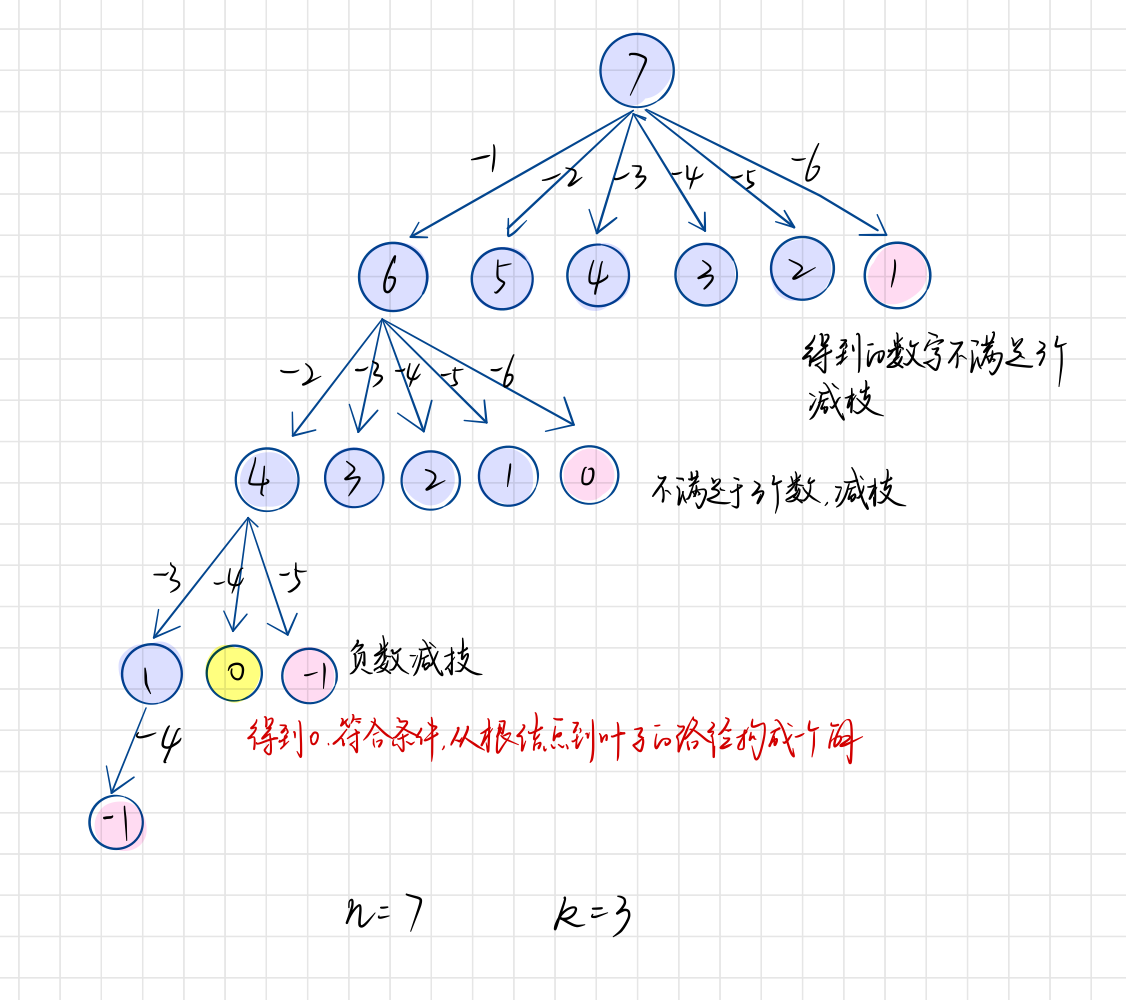 7
-1 -2 -3 -4 -5 -6
6 5 4 3 2 1
得到的数字不满足3个
减枝
-2 -3 -4 -5 -6
4 3 2 1 0
不满足于3个数,减枝
-3 -4 -5
1 0 -1
负数减技
得到0.符合条件,从根结点到叶子的路径构成一个解
-4
-1
n=7 k=3